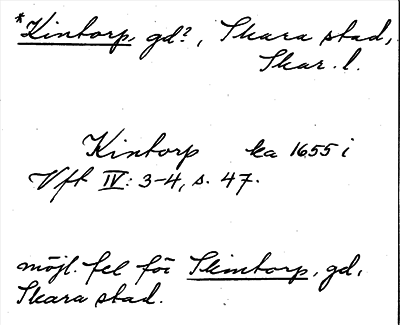 *Kintorp, gd?, Skara stad,
Skar. l.
Kintorp ka 1655 i
Vft IV: 3-4, s. 47.
möjl. fel för Skintorp, gd,
Skara stad.